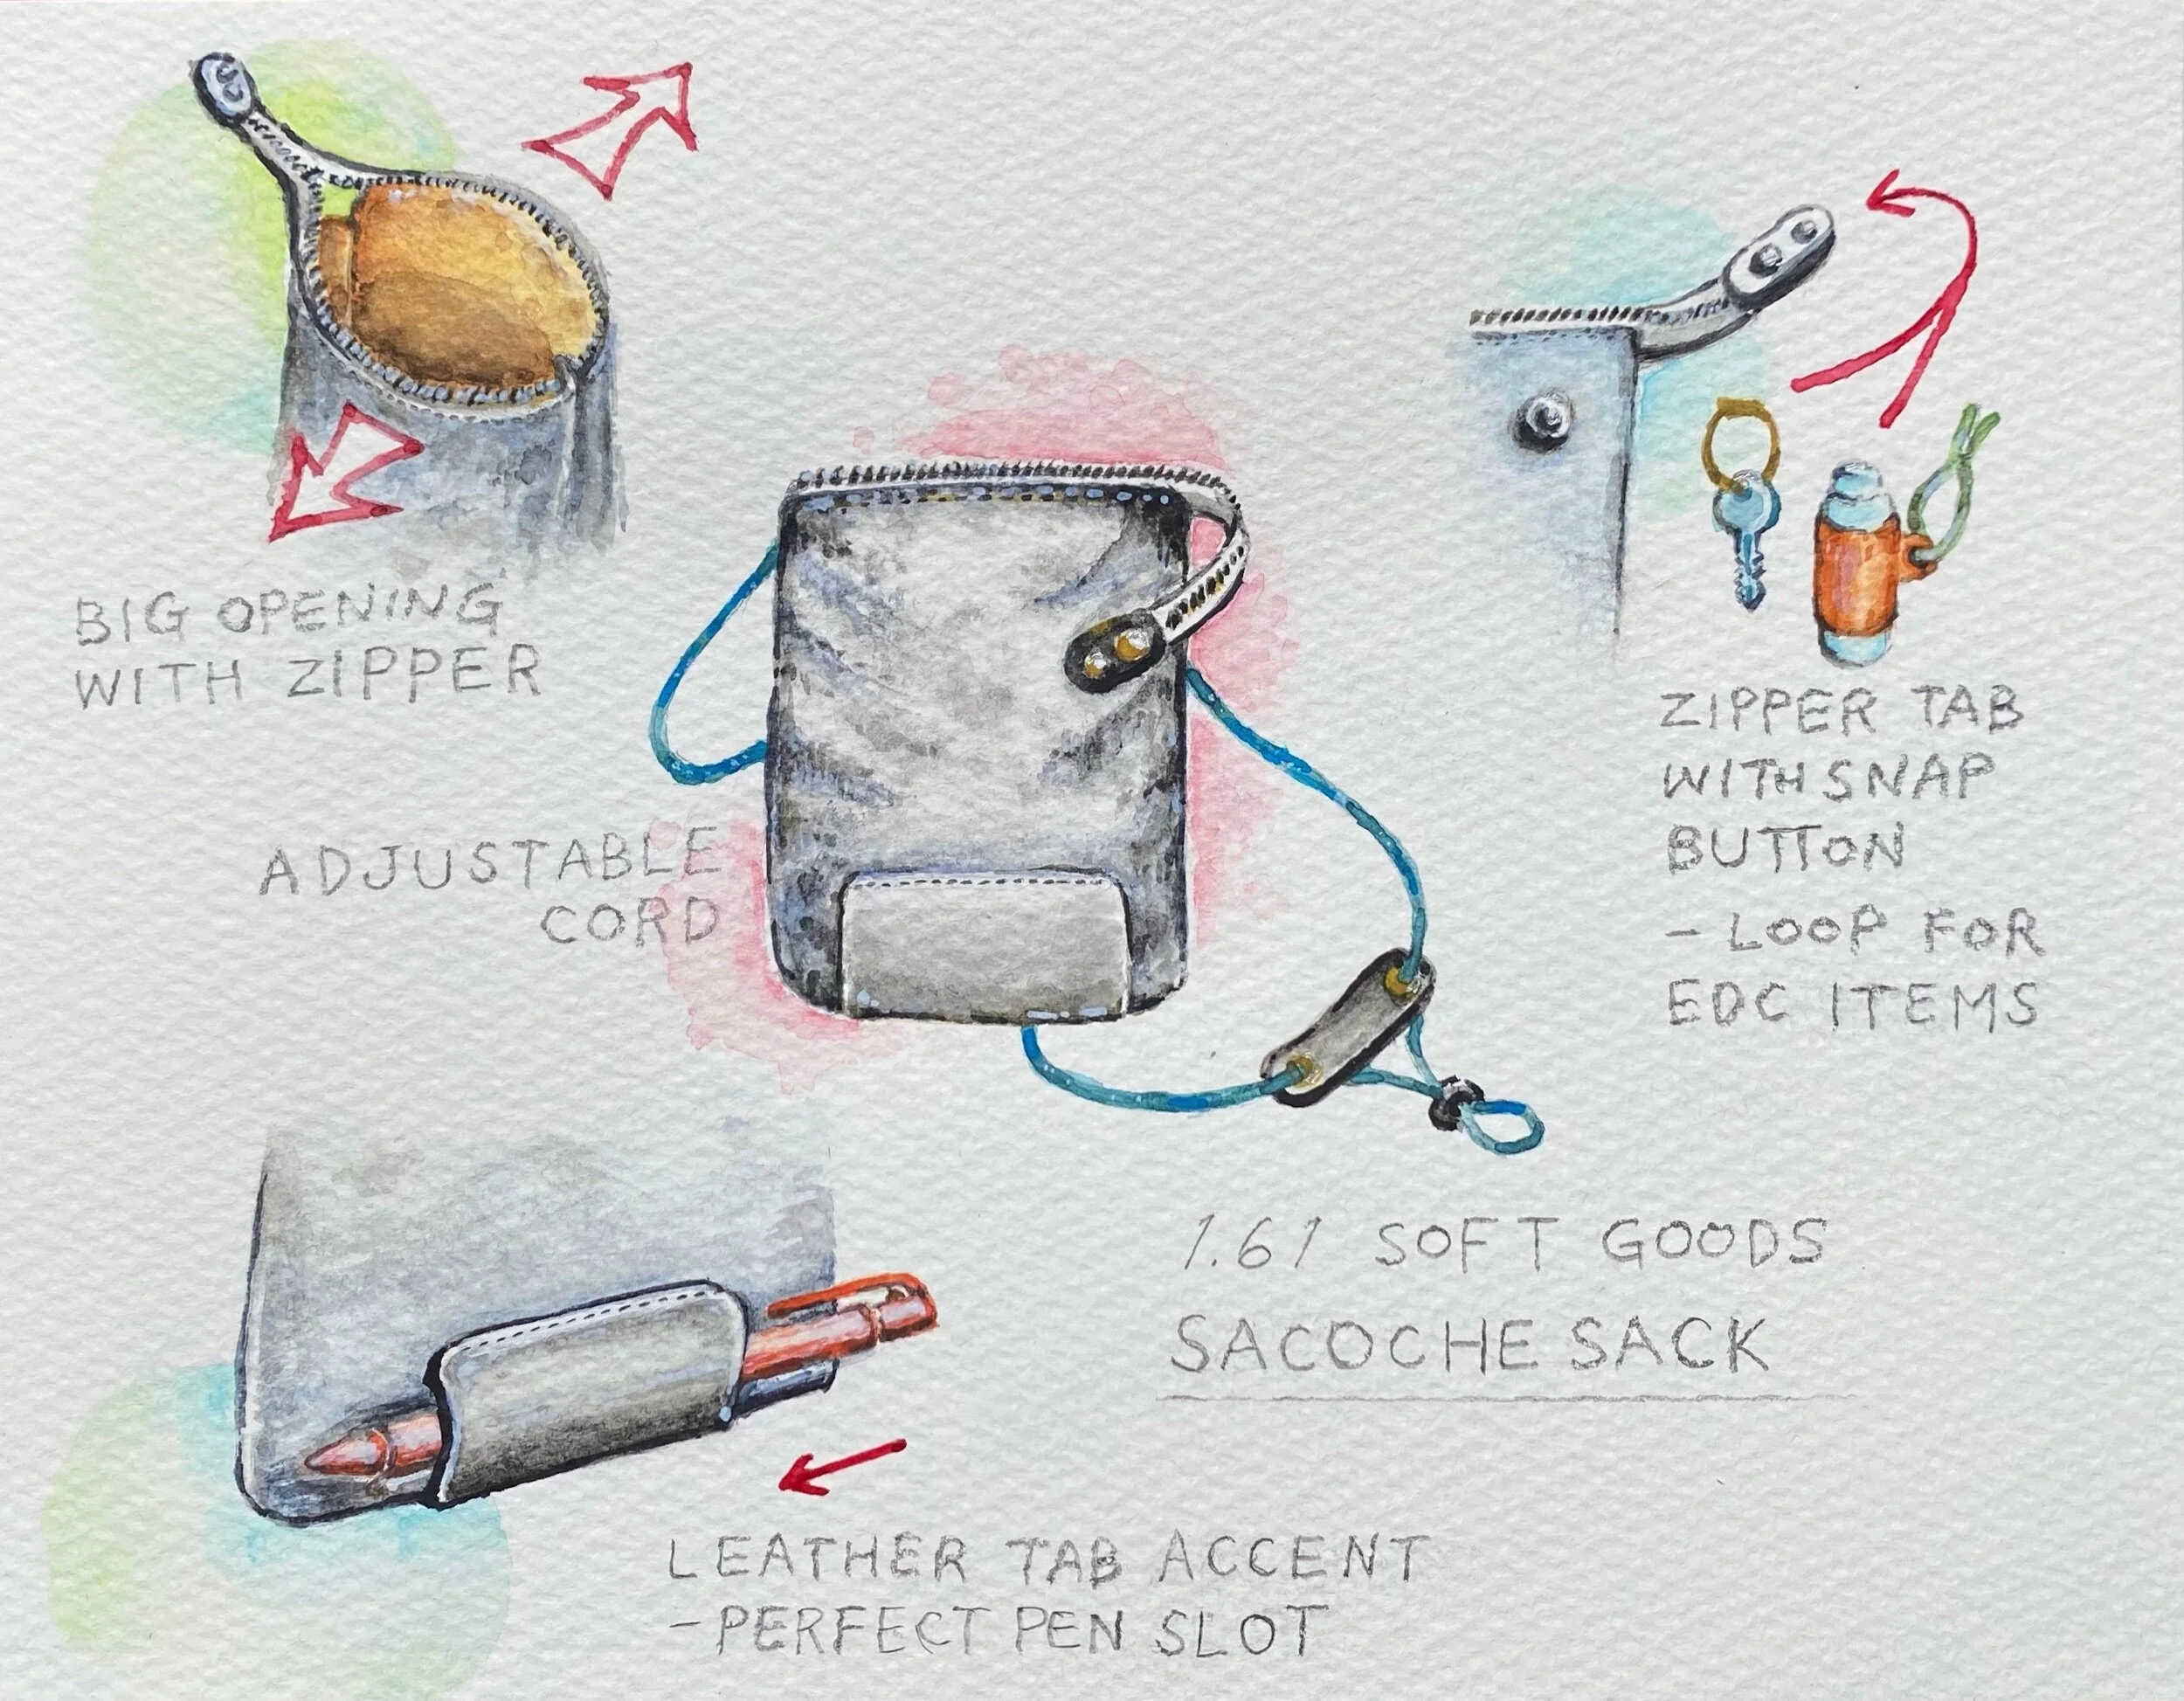 BIG OPENING
WITH ZIPPER
ADJUSTABLE
CORD
ZIPPER TAB
WITH SNAP
BUTTON
- LOOP FOR
EDC ITEMS
1.61 SOFT GOODS
SACOCHE SACK
LEATHER TAB ACCENT
- PERFECT PEN SLOT